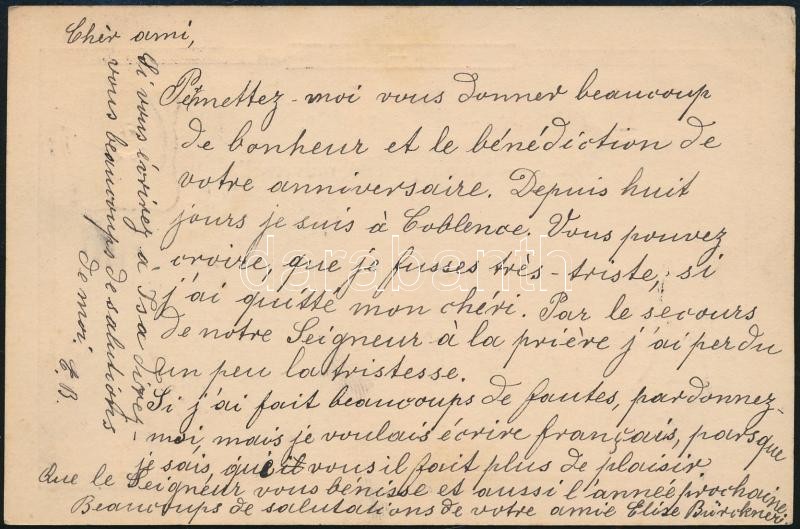 Chèr ami,
Permettez-moi vous donner beaucoup
de bonheur et le bénédiction de
votre anniversaire. Depuis huit
jours je suis à Coblence. Vous pouvez
croire, que je fusses très-triste, si
j'ai quitté mon chéri. Par le secours
de notre Seigneur à la prière j'ai perdu
un peu la tristesse.
Si j'ai fait beaucoups de fautes, pardonnez-
moi, mais je voulais écrire français, parsque
je sais, que vous il fait plus de plaisir
Que le Seigneur vous bénisse et aussi l'année prochaine
Beaucoups de salutations de votre amie Elise Bürckner
Si vous écrirez à Isa direz-
vous beaucoups de salutions
de moi. E. B.
darabanth